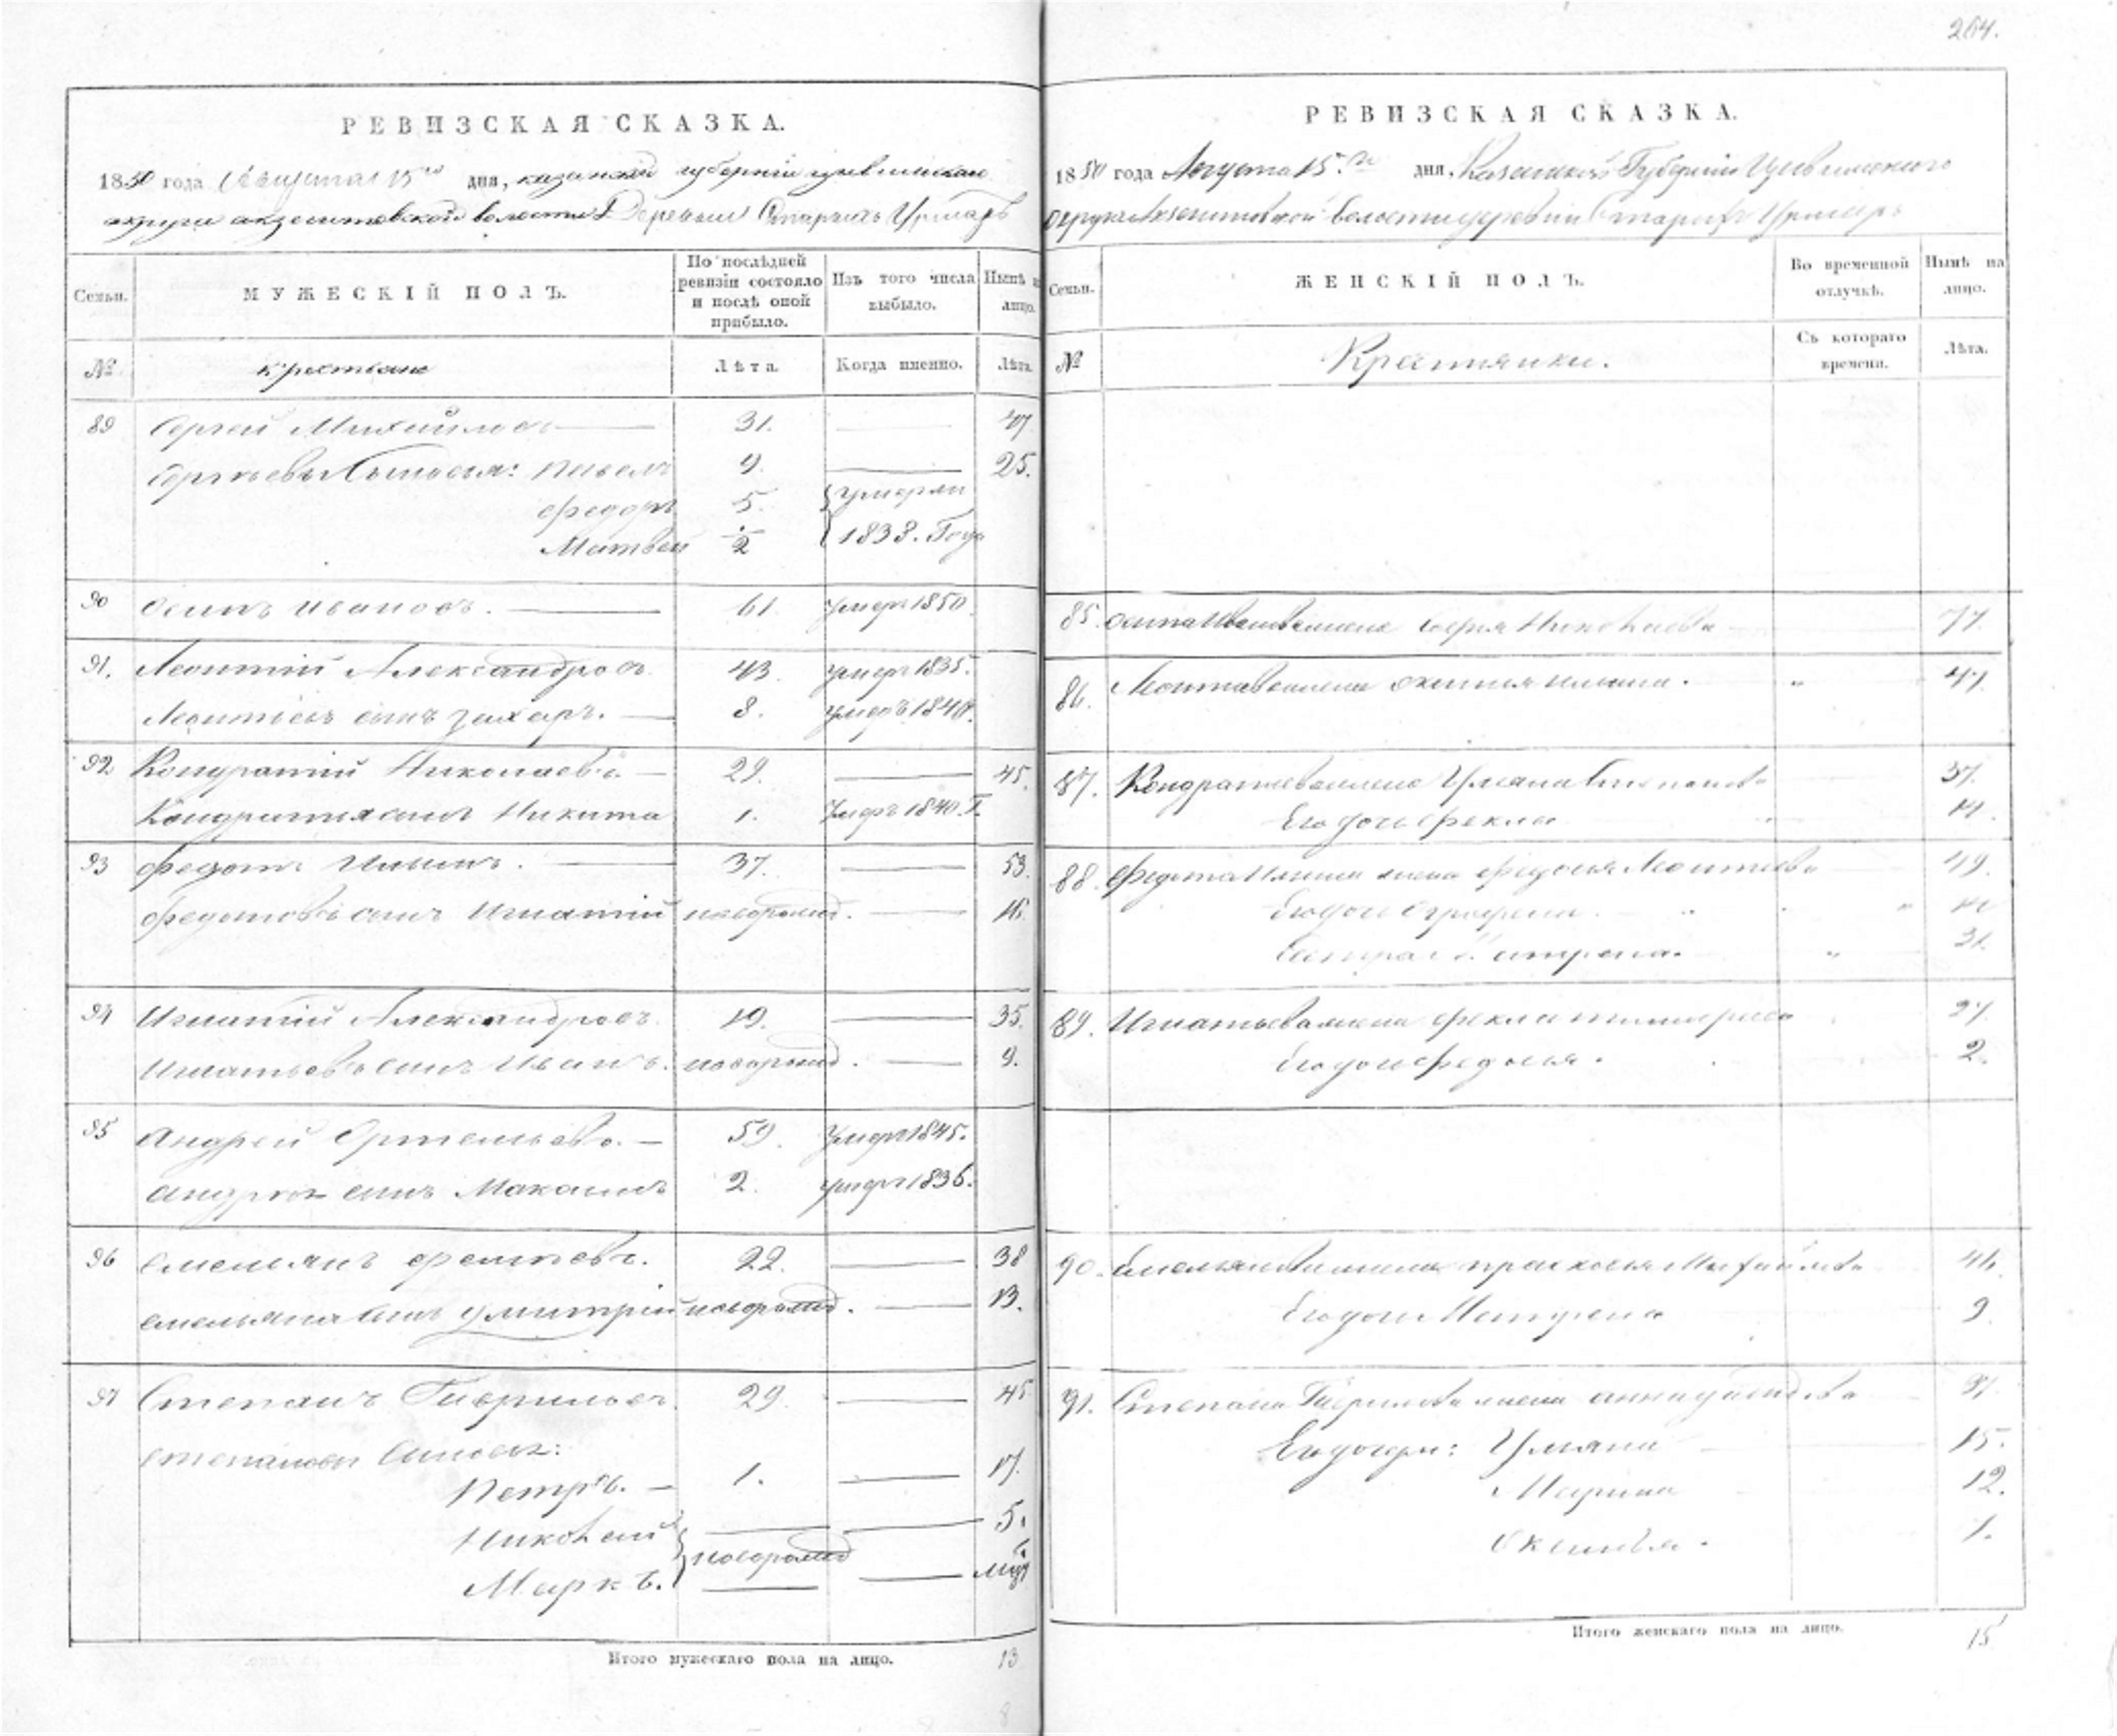 264.
РЕВИЗСКАЯ СКАЗКА.
1850 года Августа 15го дня, казанской губернии цивильскаго
округи акзегитовской волости Деревни Старыхъ Урмаръ
Семьи. МУЖЕСКІЙ ПОЛЪ. По послѣдней ревизіи состояло и послѣ оной прибыло. Изъ того числа выбыло. Нынѣ на лицо.
№ крестьяне Лѣта. Когда именно. Лѣта.
89 Сергей Михайловъ 31. 47
Сергеевы Сыновья: Павелъ 9. 25.
Федоръ 5. умерли
Матвей ½ 1838. Года
90 Осипъ Ивановъ. 61. умеръ 1850.
91. Леонтій Александровъ. 43. умеръ 1835.
Леонтіевъ сынъ Захаръ. 8. умеръ 1840.
92 Кондратій Николаевъ. 29. 45.
Кондратья сынъ Никита 1. умеръ 1840. Г.
93 Федотъ Ильинъ. 37. 53.
Федотовъ сынъ Игнатій новорожд. 16.
94 Игнатій Александровъ. 19. 35.
Игнатьевъ сынъ Иванъ. новорожд. 9.
95 Андрей Артемьевъ. 59. умеръ 1845.
Андрея сынъ Максимъ 2. умеръ 1836.
96 Емельянъ 22. 38
Емельяна сынъ Дмитрій новорожд. 13.
97 Степанъ Гавриловъ. 29. 45
Степановы Сыновья:
Петръ. 1. 17.
Николай новорожд 5.
Маркъ.
Итого мужескаго пола на лицо. 13
РЕВИЗСКАЯ СКАЗКА.
1850 года Августа 15.го дня, Казанской Губерніи Цивильскаго
округи Акзегитовской волости деревни Старыхъ Урмаръ
Семьи. ЖЕНСКІЙ ПОЛЪ. Во временной отлучкѣ. Нынѣ на лицо.
№ Крестьянки. Съ котораго времени. Лѣта.
85. Осипа Иванова жена Николаева 77.
86. Леонтьева жена Ильина. 47
87. Кондратьева жена Ульяна Степанова 37.
Его дочь Фекла 14.
88. Федота Ильина жена Федосья Леонтьева 49.
Его дочь
Сестра 31.
89. Игнатьева жена Фекла 27.
Его дочь Федосья. 2.
90. Емельянова жена Прасковья Михайлова 46.
Его дочь Матрена 9.
91. Степана Гаврилова жена Анна
Его дочери: Ульяна 15.
Марина 12.
Оксинья. 1.
Итого женскаго пола на лицо. 15